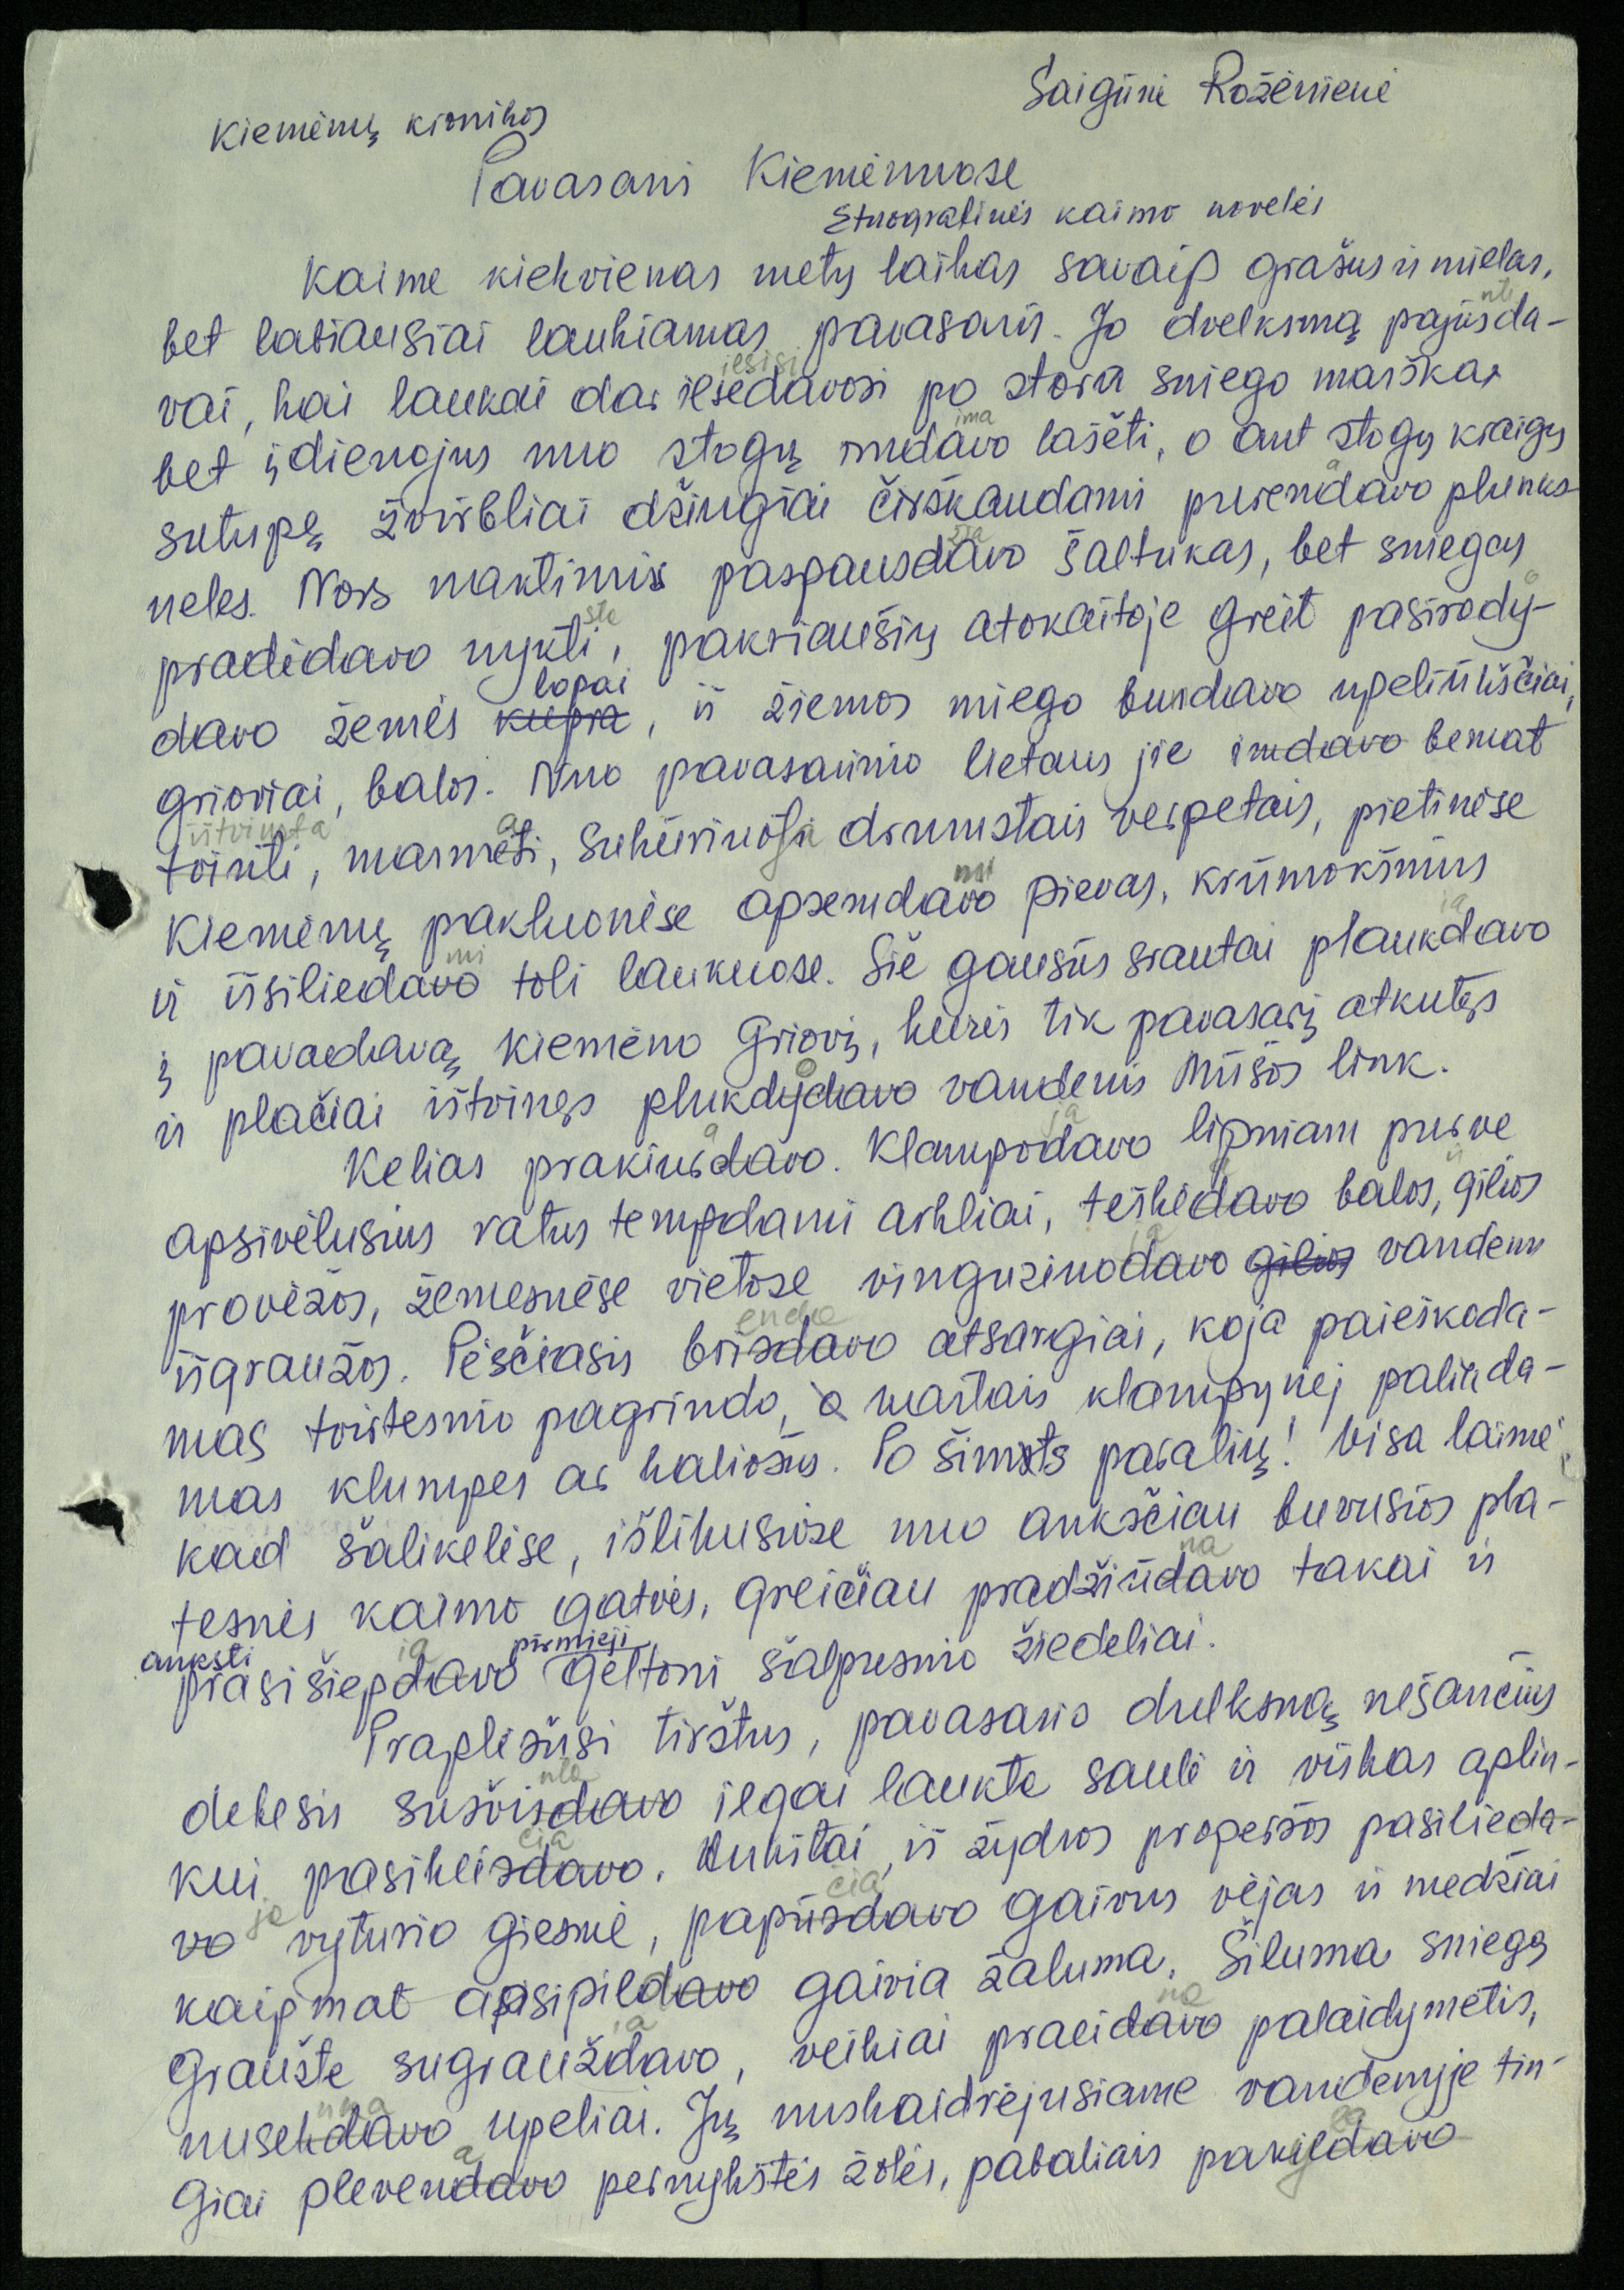 Saigūnė Rožėnienė
Kiemėnų kronikos
Pavasaris Kiemėnuose
Etnografinės kaimo novelės
Kaime kiekvienas metų laikas savaip gražus ir mielas,
bet labiausiai laukiamas pavasaris. Jo dvelksmą pajusda-
vai, kai laukai dar ilsėdavosi po stora sniego marška,
bet įdienojus nuo stogų imdavo lašėti, o ant stogų kraigų
sutūpę žvirbliai džiugiai čirškaudami purendavo plunks-
neles. Nors naktimis paspausdavo šaltukas, bet sniegas
pradėdavo nykti, pakriaušių atokaitoje greit pasirody-
davo žemės kupra lopai, iš žiemos miego busdavo upeliūkščiai,
grioviai, balos. Nuo pavasarinio lietaus jie imdavo bemat
tvinti, marmėti, sukūriuoti drumstais verpetais, pietinėse
Kiemėnų pakluonėse apsemdavo pievas, krūmokšnius
ir išsiliedavo toli laukuose. Šie gausūs srautai plaukdavo
į pavandravą Kiemėno Griovį, kuris tik pavasarį atkutęs
ir plačiai ištvinęs plukdydavo vandenis Mūšos link.
Kelias prakiurdavo. Klampodavo lipniam purve
apsivėlusius ratus tempdami arkliai, teškėdavo balos, gilios
provėžos, žemesnėse vietose vinguriuodavo gilios vandens
išgraužos. Pėsčiasis brisdavo atsargiai, koja paieškoda-
mas tvirtesnio pagrindo, o kartais klampynėj palikda-
mas klumpes ar kaliošus. Po šimts paralių! Visa laimė,
kad šalikelėse, išlikusiose nuo anksčiau buvusios pla-
tesnės kaimo gatvės, greičiau pradžiūdavo takai ir
anksti prasišiepdavo pirmieji geltoni šalpusnio žiedeliai.
Praplėšusi tirštus, pavasario dvelksmą nešančius
debesis sušvisdavo ilgai laukta saulė ir viskas aplin-
kui pasikeisdavo. Aukštai, iš žydros properšos pasilieda-
vo vyturio giesmė, papūsdavo gaivus vėjas ir medžiai
kaipmat apsipildavo gaivia žaluma. Šiluma sniegą
graužte sugrauždavo, veikiai praeidavo palaidymetis,
nusekdavo upeliai. Jų nuskaidrėjusiame vandenyje tin-
giai plevendavo pernykštės žolės, pabaliais pakildavo